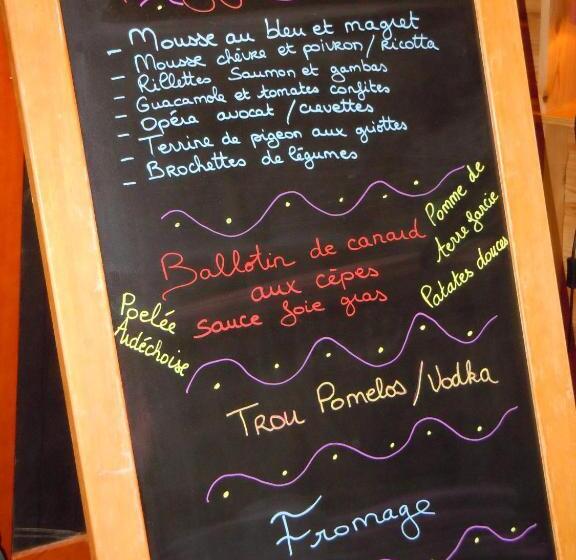 - Mousse au bleu et magret
- Mousse chèvre et poivron / Ricotta
- Rillettes Saumon et gambas
- Guacamole et tomates confites
- Opéra avocat / crevettes
- Terrine de pigeon aux griottes
- Brochettes de légumes
Ballotin de canard
aux cèpes
sauce foie gras
Pomme de
terre farcie
Patates douces
Poelée
Ardéchoise
Trou Pomelos / Vodka
Fromage